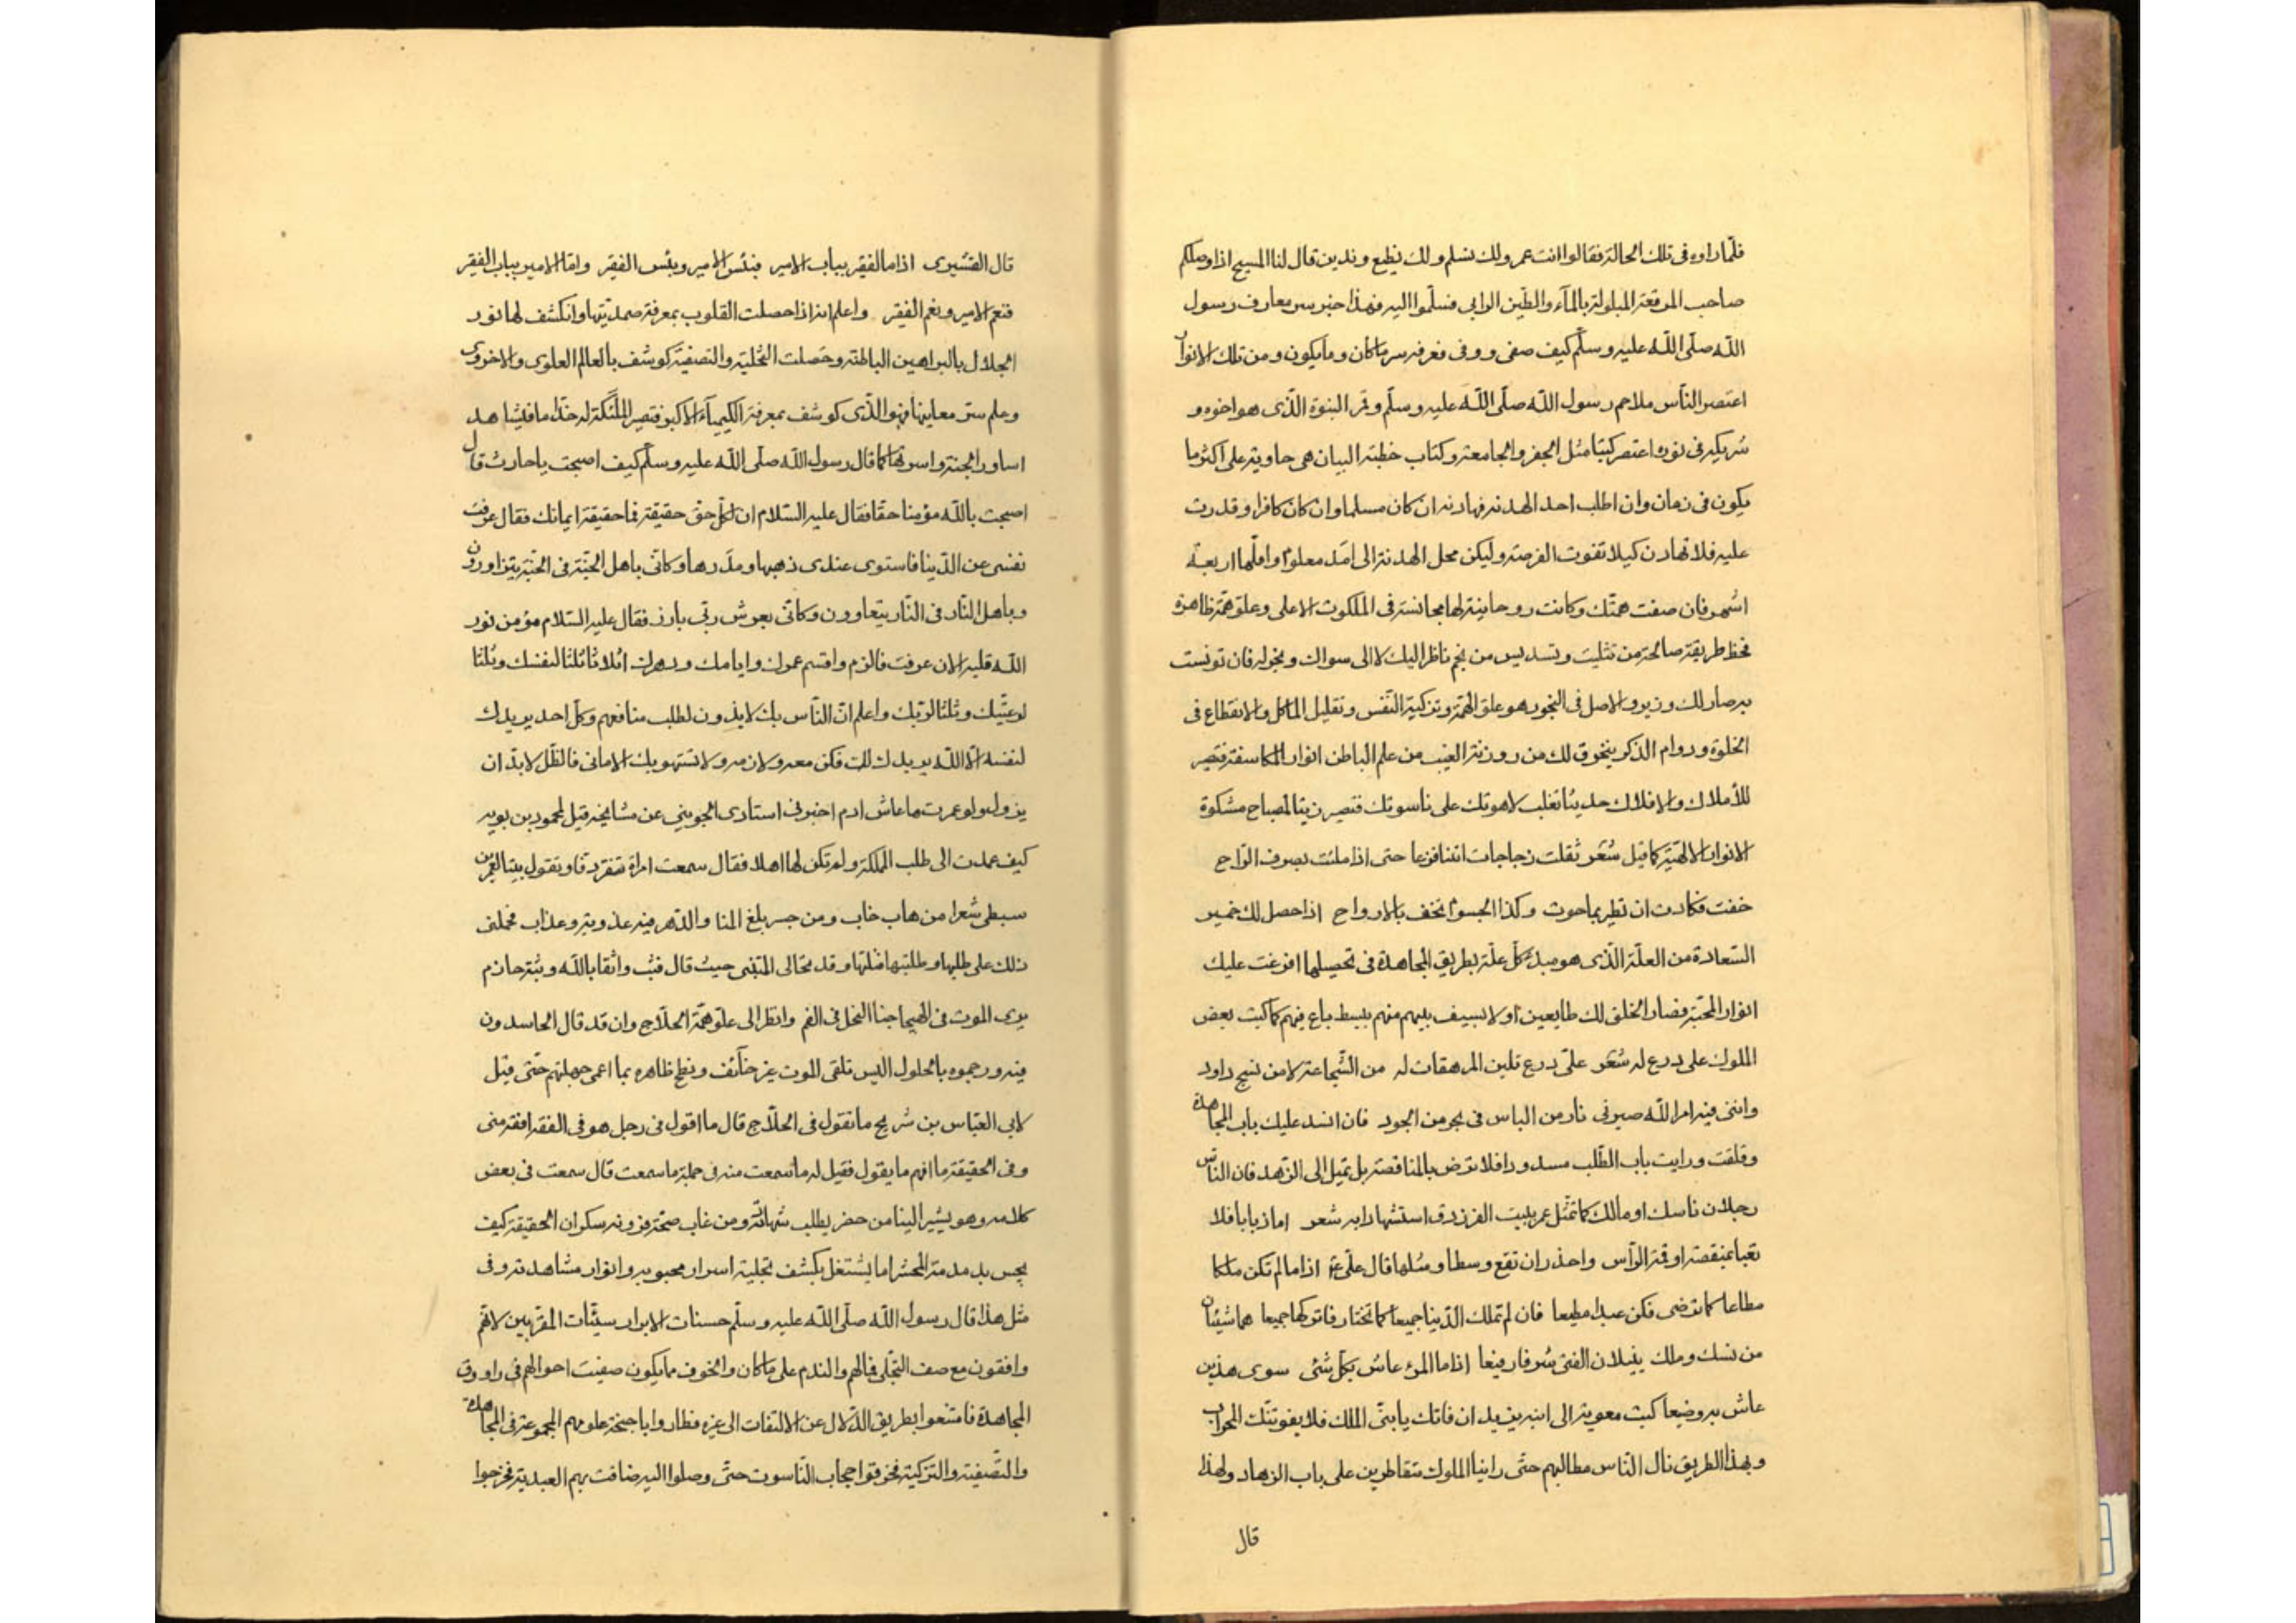 فلمّا راوه فى تلك الحالة فقالوا انت عمر ولك نسلم ولك نطيع وندين قال لنا المسيح اذا وصلكم
صاحب المرقعة المبلولة بالمآء والطّين الوابى فسلّموا اليه فهذا خبر سر معارف رسول
اللّه صلّى اللّه عليه وسلّم كيف صفى ووفى فعرفه سر ماكان ومايكون ومن تلك الانوار
اعتصر النّاس ملاحم رسول اللّه صلّى اللّه عليه وسلّم وقر النبوة الّذى هو اخوه و
شريكه فى نوره اعتصر كتبًا مثل الجفر والجامعة وكتاب خطبة البيان هى حاوية على اكثر ما
يكون فى زمان وان اطلب احد الهدنة فهادنه ان كان مسلما وان كان كافرا وقدرت
عليه فلا تهادن كيلا تفوت الفرصة وليكن محل الهدنة الى امد معلوم واقلّها اربعة
اشهر فان صفت همتّك وكانت روحانية لها مجانسة فى الملكوت الاعلى وعلوّ همّة ظاهرة
فخط طريقة صالحة من تثليت وتسديس من نجم ناظر اليك لا الى سواك وبخوله فان تونست
به صار لك وزيرو الاصل فى النجود هو علوّ الهمّة وتزكية النّفس وتقليل الماكل والانقطاع فى
الخلوة ودوام الذكر ينخرق لك من روزنة الغيب من علم الباطن انوار المكاسفة فتصير
للأملاك والافلاك حديثا تغلب لاهوتك على ناسوتك فتصير زيتا لمصباح مشكوة
الانوار الالهيّة كما قيل شعر ثقلت زجاجات اتتنا فزعا حتى اذا ملئت بصرف الرّاح
خفت فكادت ان تطير بماحوت وكذا الجسوم تخف بالارواح اذا حصل لك خمير
السّعادة من العلّة الّذى هو مبدء كلّ علّة بطريق المجاهدة فى تحصيلها افرغت عليك
انوار المحبّة فصار الخلق لك طايعين اولا بسيف بليهم منهم ببسط باع فيهم كما كتب بعض
الملوك على درع له شعر علىّ درع تلين المرهقات له من الشّجاعة لا من نسج داود
واننى فيه امر اللّه صيرنى نار من الباس فى بحر من الجود فان انسد عليك باب المجاهدة
وقلقت ورايت باب الطّلب مسدودا فلا ترض بالمناقصة بل تميل الى الزّهد فان النّاس
رجلان ناسك او مالك كما تمثّل عمر ببيت الفرزدق استشهادا به شعر اما ذبابا فلا
تعبا بمنقصة او قمة الرّأس واحذر ان تقع وسطا ومثلها قال علىّ ع اذا ما لم تكن ملكا
مطاعا كما ترضى فكن عبدا مطيعا فان لم تملك الدّنيا جميعا كما تختار فاتركها جميعا هما شيئان
من نسك وملك ينيلان الفتى شرفا رفيعا اذا ما المرء عاش بكلّ شئ سوى هذين
عاش به وضيعا كتب معوية الى ابنه يزيد ان فاتك يا بنىّ الملك فلا يفوتنّك المحراب
وبهذا الطريق نال النّاس مطالبهم حتّى راينا الملوك متقاطرين على باب الزهاد ولهذا
قال
قال القشيرى اذا ما الفقير بباب الامير فبئس الامير وبئس الفقير وامّا الامير بباب الفقير
فنعم الامير ونعم الفقير واعلم انه اذا حصلت القلوب بمعرفة صمديّتها وانكشف لها نور
الجلال بالبراهين الباطنة وحصلت التّخلية والتصفيّة كوشف بالعالم العلوى والاخروى
وعلم ستر معاينها فهو الّذى كوشف بمعرفة الكيميآء الاكبر فتصير الملئكة له خدّاما فيشاهد
اساور الجنة واسورتها كما قال رسول اللّه صلّى اللّه عليه وسلّم كيف اصبحت يا حارث قال
اصبحت باللّه مؤمنا حقّا فقال عليه السّلام ان لكلّ حق حقيقة فما حقيقة ايمانك فقال عرفت
نفسى عن الدّنيا فاستوى عندى ذهبها ومدرها وكانّى باهل الجنّة فى الجنّة يتزاورون
وباهل النّار فى النّار يتعاوون وكانّى بعرش ربّى بارز فقال عليه السّلام مؤمن نور
اللّه قلبه الان عرفت فالزم واقسم عمرك وايامك ودهرك اثلاثا ثلثا لنفسك وثلثا
لرعيّتك وثلثا لربّك واعلم انّ النّاس بك لايذون لطلب منافعهم وكلّ احد يريدك
لنفسه الّا اللّه يريدك لك فكن معه ولازمه ولا تستهويك الامانى فالظّل لابدّ ان
يزول ولو عمرت ما عاش ادم اخبرنى استادى الجوينى عن مشايخه قيل لمحمود بن بويه
كيف عمدت الى طلب المملكة ولم تكن لها اهلا فقال سمعت امراة تنقر دفّا وتقول بيتا لعمر بن
سبطى شعرا من هاب خاب ومن جسر بلغ المنا والدّهر فيه عذوبة وعذاب فحملنى
ذلك على طلبها وطلبتها فنلتها وقد تحالى المتنبى حيث قال فثب واثقا باللّه وثبة حازم
يرى الموت فى الهيجا جنا النحل فى الفم وانظر الى علوّ همّة الحلّاج وان قد قال الحاسدون
فيه ورجموه بالحلول اليس تلقى الموت غير خائف ونطع ظاهره بما اعمى جهلتهم حتّى قيل
لابى العبّاس بن شريح ما تقول فى الحلّاج قال ما اقول فى رجل هو فى الفقر افقر منى
وفى الحقيقة ما افهم ما يقول فقيل له ما سمعت منه فى جملة ما سمعت قال سمعت فى بعض
كلامه وهو يشير الينا من حضر يطلب شهاتة ومن غاب صحّة فزونه سكران الحقيقة كيف
يحس بدمدمة المحشر اما يشتغل بكشف تجلية اسرار محبوبه وانوار مشاهدته وفى
مثل هذا قال رسول اللّه صلّى اللّه عليه وسلّم حسنات الابرار سيئّات المقرّبين لانّهم
وافقون مع صف التجلّى فبالهم والندم على ماكان والخوف مما يكون صفيت احوالهم فى راووق
المجاهدة فامتنعوا بطريق الدّلال عن الالتفات الى غيره فطاروا باجنحة علومهم المجموعة فى المجاهدة
والتّصفية والتزكية فخرقوا حجاب النّاسوت حتّى وصلوا اليه ضافت بهم العبدية فخرجوا